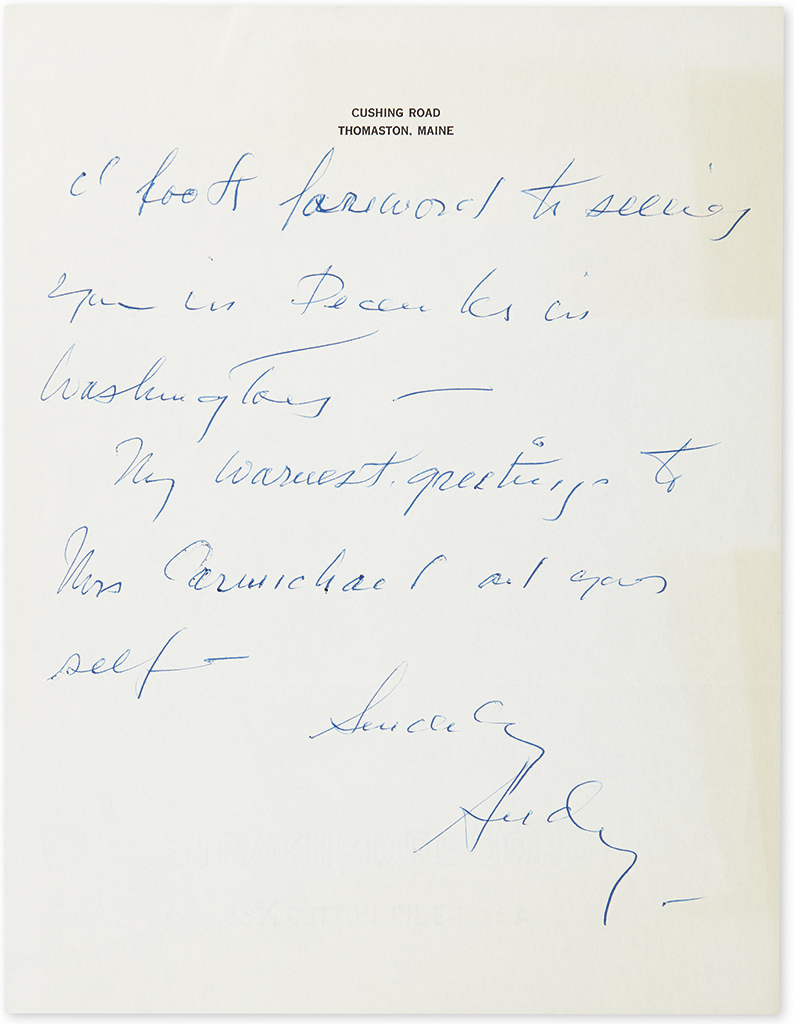 CUSHING ROAD
THOMASTON, MAINE
I look foreword to seeing
you in December in
Washington —
My warmest greetings to
Mrs Carmichael and your
self —
Sincerely
Andy —